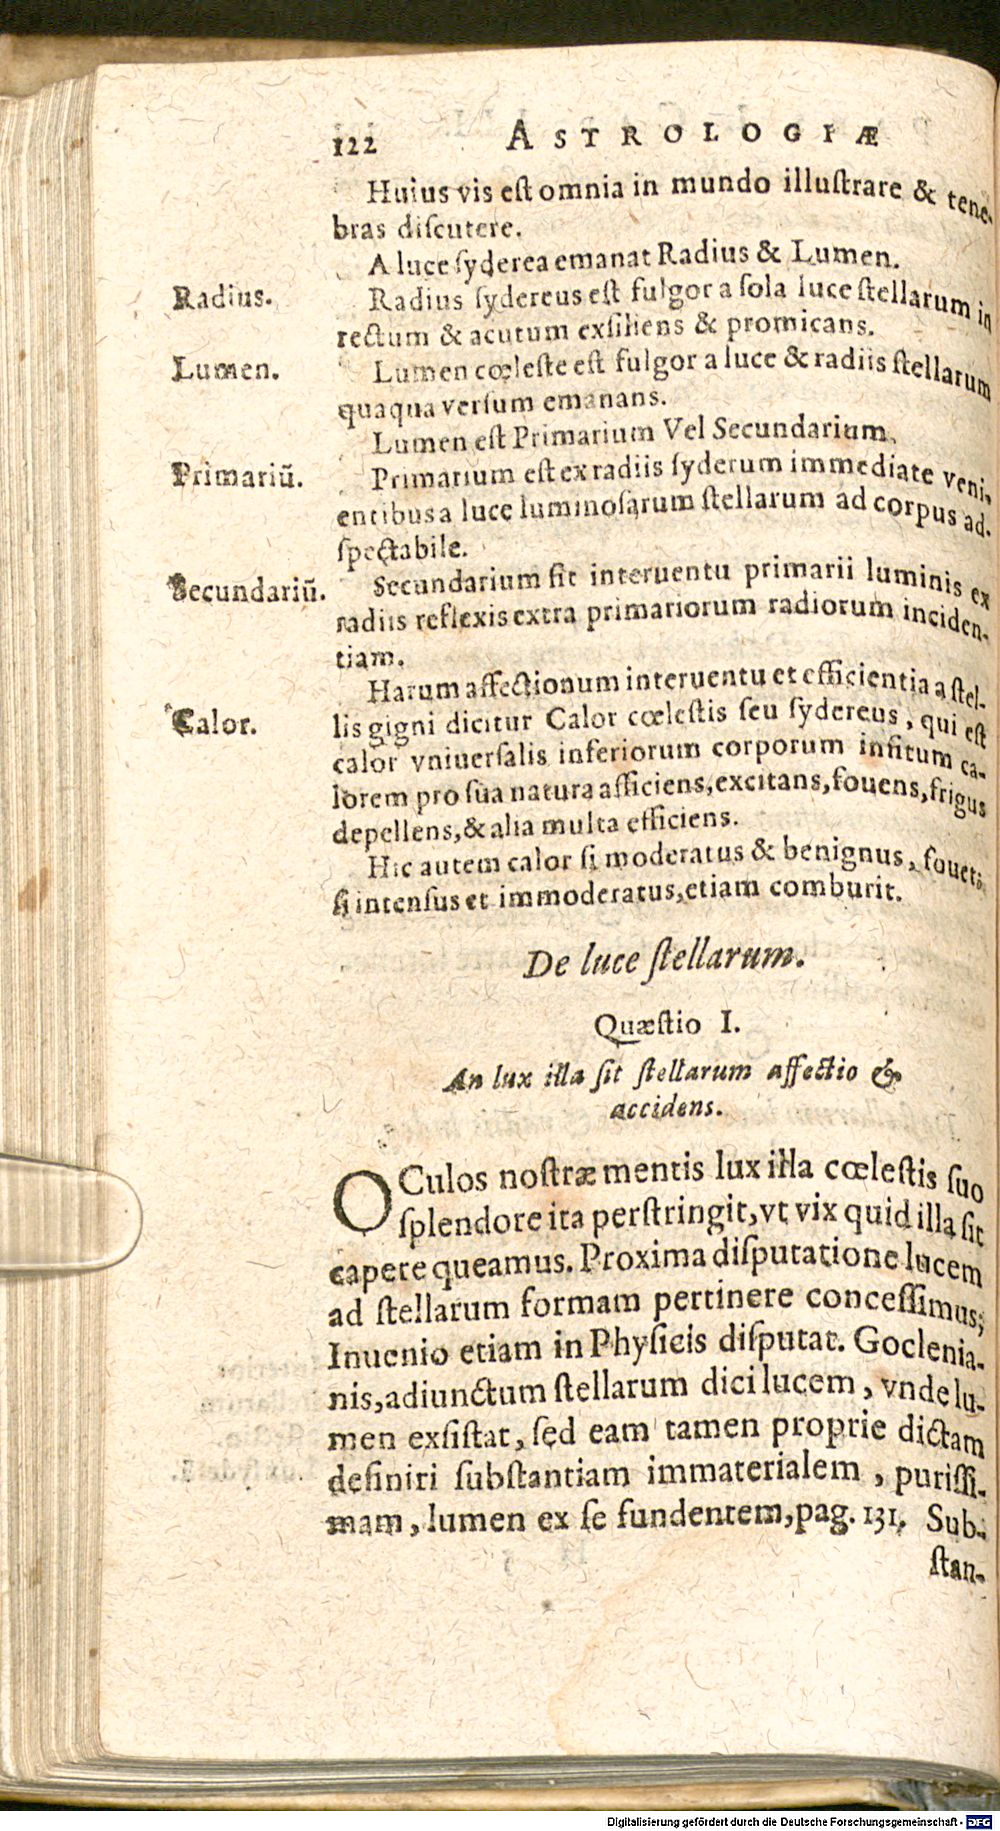 122 ASTROLOGIÆ
Huius vis eſt omnia in mundo illuſtrare & tene-
bras diſcutere.
A luce ſyderea emanat Radius & Lumen.
Radius.
Radius ſydereus eſt fulgor a ſola luce ſtellarum in
rectum & acutum exſiliens & promicans.
Lumen.
Lumen cœleſte eſt fulgor a luce & radiis ſtellarum
quaqua verſum emanans.
Lumen eſt Primarium Vel Secundarium.
Primariū.
Primarium eſt ex radiis ſyderum immediate veni-
entibus a luce luminoſarum ſtellarum ad corpus ad-
ſpectabile.
Secundariū.
Secundarium fit interuentu primarii luminis ex
radiis reflexis extra primariorum radiorum inciden-
tiam.
Harum affectionum interuentu et efficientia a ſtel-
Calor.
lis gigni dicitur Calor cœleſtis ſeu ſydereus, qui eſt
calor vniuerſalis inferiorum corporum inſitum ca-
lorem pro ſua natura afficiens, excitans, fouens, frigus
depellens, & alia multa efficiens.
Hic autem calor ſi moderatus & benignus, fouet;
ſi intenſus et immoderatus, etiam comburit.
De luce ſtellarum.
Quæſtio I.
An lux illa ſit ſtellarum affectio &
accidens.
OCulos noſtræ mentis lux illa cœleſtis ſuo
ſplendore ita perſtringit, vt vix quid illa ſit
capere queamus. Proxima diſputatione lucem
ad ſtellarum formam pertinere conceſſimus;
Inuenio etiam in Phyſicis diſputat. Goclenia-
nis, adiunctum ſtellarum dici lucem, vnde lu-
men exſiſtat, ſed eam tamen proprie dictam
definiri ſubſtantiam immaterialem, puriſſi-
mam, lumen ex ſe fundentem, pag. 131. Sub-
ſtan-
Digitalisierung gefördert durch die Deutsche Forschungsgemeinschaft - DFG